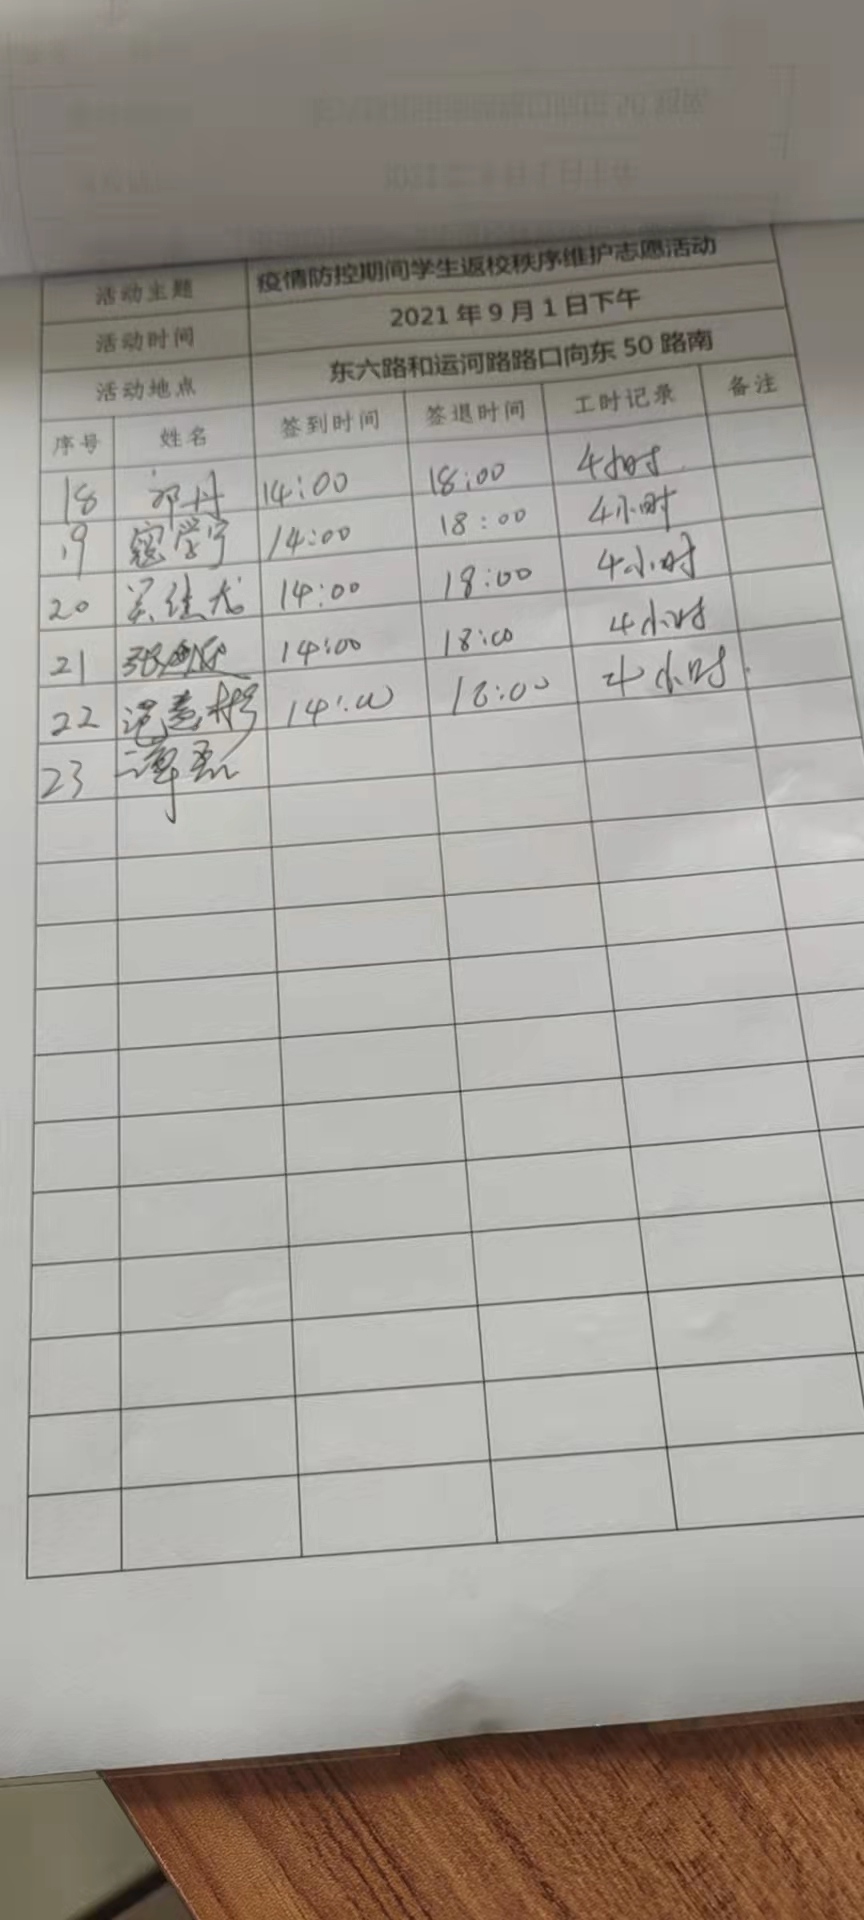 活动主题 疫情防控期间学生返校秩序维护志愿活动
活动时间 2021年9月1日下午
活动地点 东六路和运河路路口向东50路南
序号 姓名 签到时间 签退时间 工时记录 备注
18 邓丹 14:00 18:00 4小时
19 寇学宁 14:00 18:00 4小时
20 吴佳龙 14:00 18:00 4小时
21 张 14:00 18:00 4小时
22 范慧彬 14:00 18:00 4小时.
23 谭磊